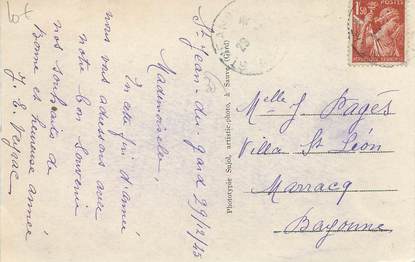 St Jean-du-Gard 29/12/45
Mademoiselle,
En cette fin d'année
nous vous adressons avec
notre bon souvenir
nos souhaits de
Bonne et heureuse année
J. E.
Melle J Pagès
Villa St Léon
Marracq
Bayonne
Phototypie Sujol, artistic-photo, à Sauve (Gard)
POSTES
1,50